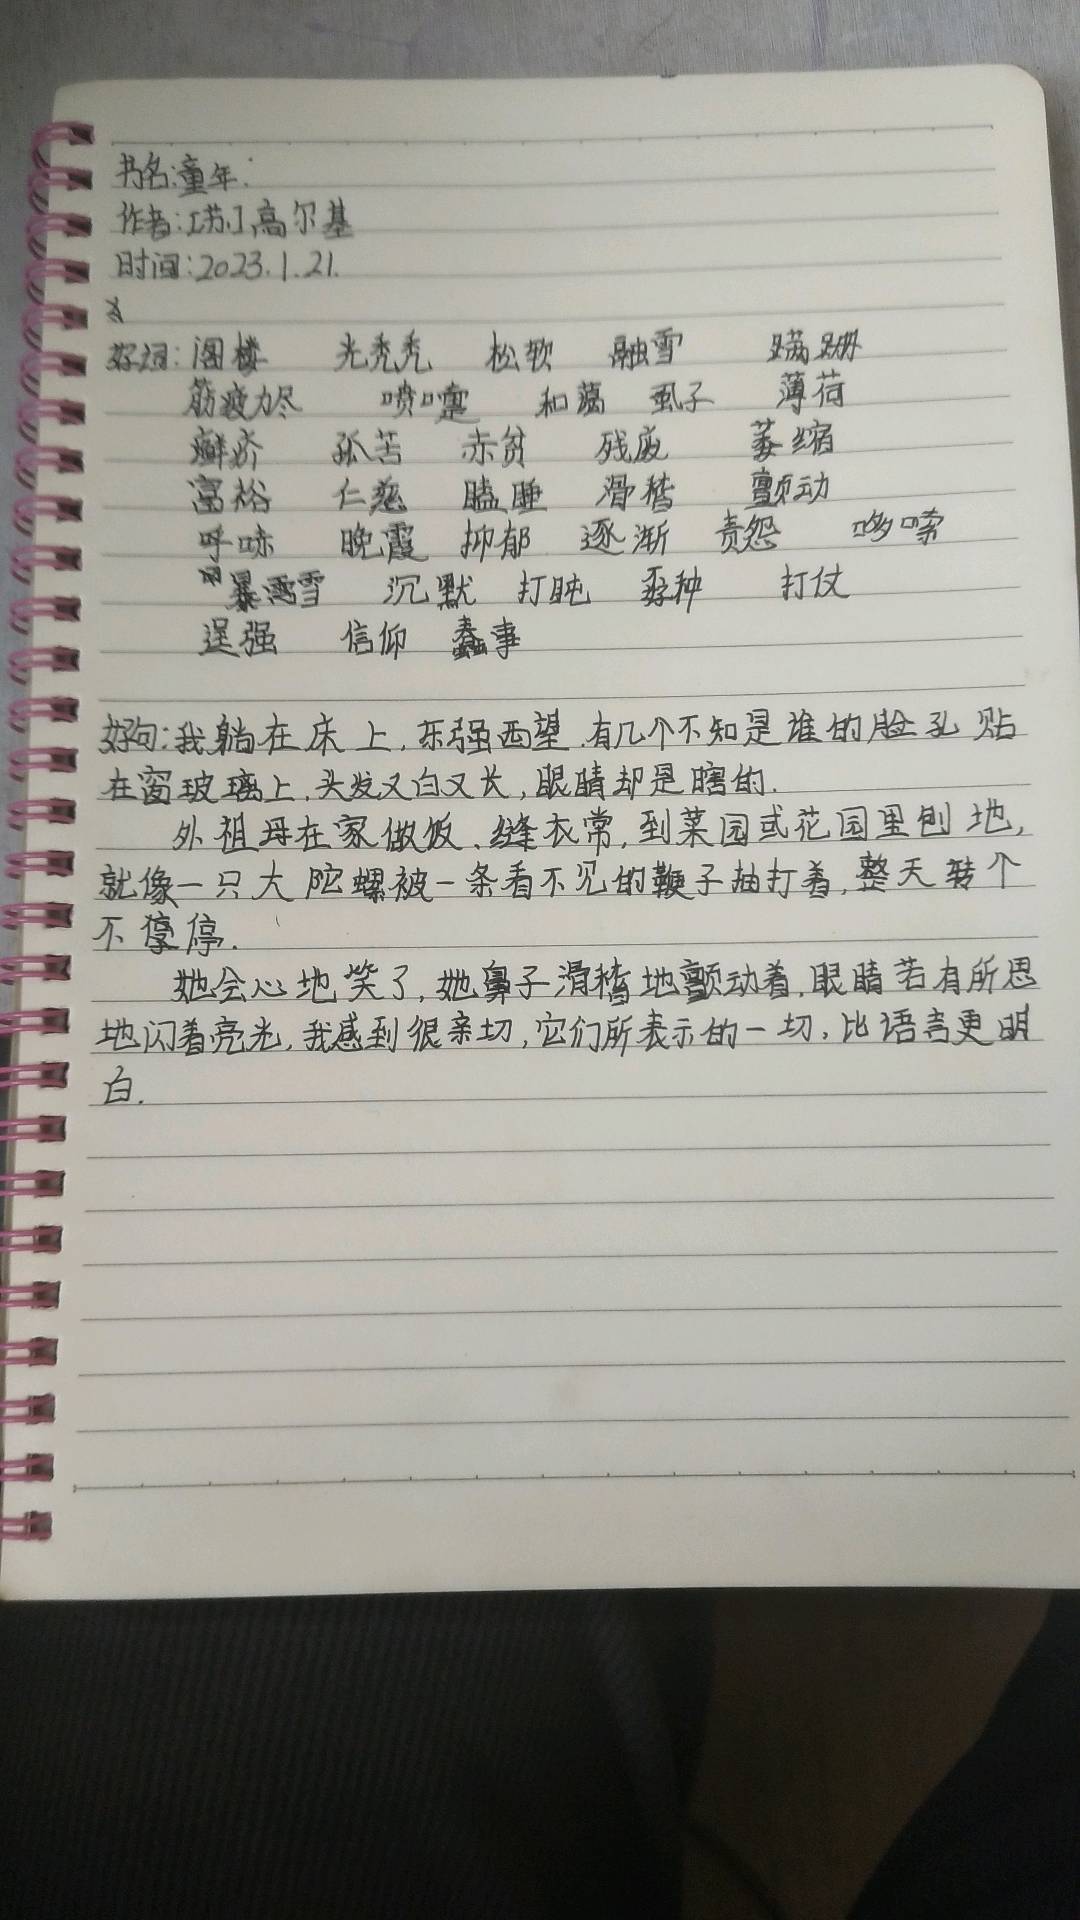 书名:童年.
作者:[苏]高尔基
时间:2023.1.21.
好词:阁楼 光秃秃 松软 融雪 蹒跚
筋疲力尽 喷嚏 和蔼 虱子 薄荷
癣疥 孤苦 赤贫 残废 萎缩
富裕 仁慈 瞌睡 滑稽 颤动
呼哧 晚霞 抑郁 逐渐 责怨 哆嗦
暴雪 沉默 打盹 孬种 打仗
逞强 信仰 蠢事
好句:我躺在床上,东张西望,有几个不知是谁的脸孔贴
在窗玻璃上,头发又白又长,眼睛却是瞎的.
外祖母在家做饭、缝衣常,到菜园或花园里刨地,
就像一只大陀螺被一条看不见的鞭子抽打着,整天转个
不停.
她会心地笑了,她鼻子滑稽地颤动着,眼睛若有所思
地闪着亮光,我感到很亲切,它们所表示的一切,比语言更明
白.